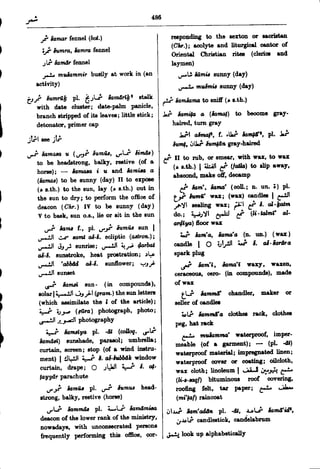 شمر
486
شمر šamar fennel (bot.)
شمرة šumra, šamra fennel
شمار šamār fennel
مشمر mušammir busily at work in (an
activity)
شمراخ šumrāḵ pl. شماريخ šamārīḵ² stalk
with date cluster; date-palm panicle,
branch stripped of its leaves; little stick;
detonator, primer cap
اشمأز see شمز
شمس šamasa u (شموس šumūs, شماس šimās)
to be headstrong, balky, restive (of a
horse); — šamasa i u and šamisa a
(šamas) to be sunny (day) II to expose
(ه s.th.) to the sun, lay (ه s.th.) out in
the sun to dry; to perform the office of
deacon (Chr.) IV to be sunny (day)
V to bask, sun o.s., lie or sit in the sun
شمس šams f., pl. شموس šumūs sun |
سمت الشمس samt aš-š. ecliptic (astron.);
شروق الشمس sunrise; ضربة الشمس ḍarbat
aš-š. sunstroke, heat prostration; عباد
الشمس ʿabbād aš-š. sunflower; غروب
الشمس sunset
شمسي šamsī sun- (in compounds),
solar | الحروف الشمسية (gram.) the sun letters
(which assimilate the l of the article);
صورة شمسية (ṣūra) photograph, photo;
تصوير شمسي photography
شمسية šamsīya pl. -āt (colloq. شماسي
šamāsī) sunshade, parasol; umbrella;
curtain, screen; stop (of a wind instru-
ment) | شمسية الشباك š. aš-šubbāk window
curtain, drape; O شمسية الطيار š. aṭ-
ṭayyār parachute
شموس šamūs pl. شمس šumus head-
strong, balky, restive (horse)
شماس šammās pl. شمامسة šamāmisa
deacon of the lower rank of the ministry,
nowadays, with unconsecrated persons
frequently performing this office, cor-
responding to the sexton or sacristan
(Chr.); acolyte and liturgical cantor of
Oriental Christian rites (clerics and
laymen)
شامس šāmis sunny (day)
مشمس mušmis sunny (day)
شمشم šamšama to sniff (ه s.th.)
شمط šamiṭa a (šamaṭ) to become gray-
haired, turn gray
اشمط ašmaṭ², f. شمطاء šamṭāʾ², pl. شمط
šumṭ, شمطان šumṭān gray-haired
شمع II to rub, or smear, with wax, to wax
(ه s.th.) | شمع الفتلة (fatla) to slip away,
abscond, make off, decamp
شمع šamʿ, šamaʿ (coll.; n. un. ة) pl.
شموع šumūʿ wax; (wax) candles | الشمع
الاحمر sealing wax; شمع الختم š. al-ḵatm
do.; شمع لتلميع الارضية (li-talmīʿ al-
arḍīya) floor wax
شمعة šamʿa, šamaʿa (n. un.) (wax)
candle | O شمعة الشرارة š. aš-šarāra
spark plug
شمعي šamʿī, šamaʿī waxy, waxen,
ceraceous, cero- (in compounds), made
of wax
شماع šammāʿ chandler, maker or
seller of candles
شماعة šammāʿa clothes rack, clothes
peg, hat rack
مشمع mušammaʿ waterproof, imper-
meable (of a garment); — (pl. -āt)
waterproof material; impregnated linen;
waterproof cover or coating; oilcloth,
wax cloth; linoleum | مشمع لسقف
(li-s-saqf) bituminous roof covering,
roofing felt, tar paper; معطف مشمع
(miʿṭaf) raincoat
شمعدان šamʿadān pl. -āt, شماعد šamāʿid²,
شماعدين candlestick, candelabrum
شمعل look up alphabetically